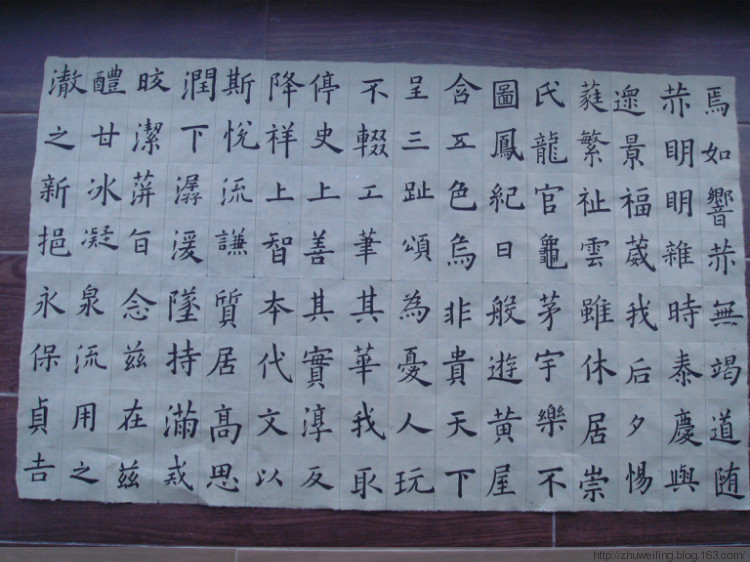 焉如響赤無竭道随
赤明明雜時泰慶與
景福葳我后夕惕
蕤繁祉雲雖休居崇
氏龍官龜茅宇樂不
圖鳳紀日般遊黃屋
含五色烏非貴天下
呈三趾頌為憂人玩
不輟工筆其華我取
停史上善其實淳反
降祥上智本代文以
斯悅流謙質居高思
潤下潺湲墜持滿戒
晈潔蓱旨念兹在兹
醴甘冰凝泉流用之
澈之新挹永保貞吉
http://zhuweiling.blog.163.com/